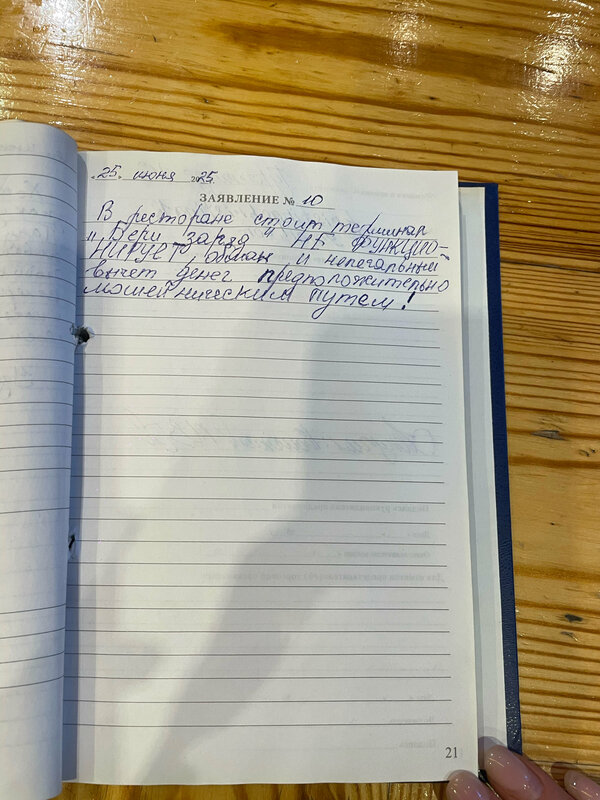 „25" июня 2025.
ЗАЯВЛЕНИЕ № 10
В ресторане стоит терминал
„Бери заряд" НЕ ФУНКЦИО-
НИРУЕТ, обман и нелегальный
вычет денег предположительно
мошенническим путем!
21